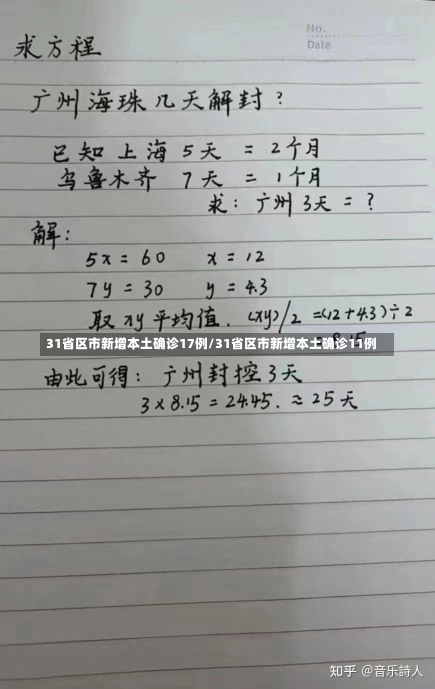 No.
Date
求方程
广州海珠几天解封?
已知上海5天=2个月
乌鲁木齐 7天=1个月
求:广州3天=?
解:
5x=60 x=12
7y=30 y=4.3
取xy平均值.(xy)/2=(12+4.3)÷2
31省区市新增本土确诊17例/31省区市新增本土确诊11例
由此可得:广州封控3天
3×8.15=24.45.≈25天
知乎 @音乐詩人